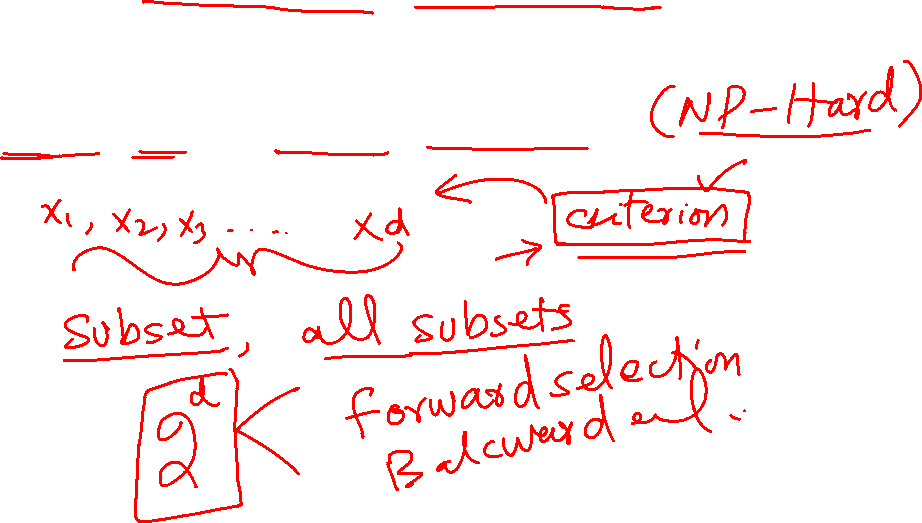 (NP-Hard)
x1, x2, x3 ..... xd
criterion
subset, all subsets
2^d
forward selection
Backward